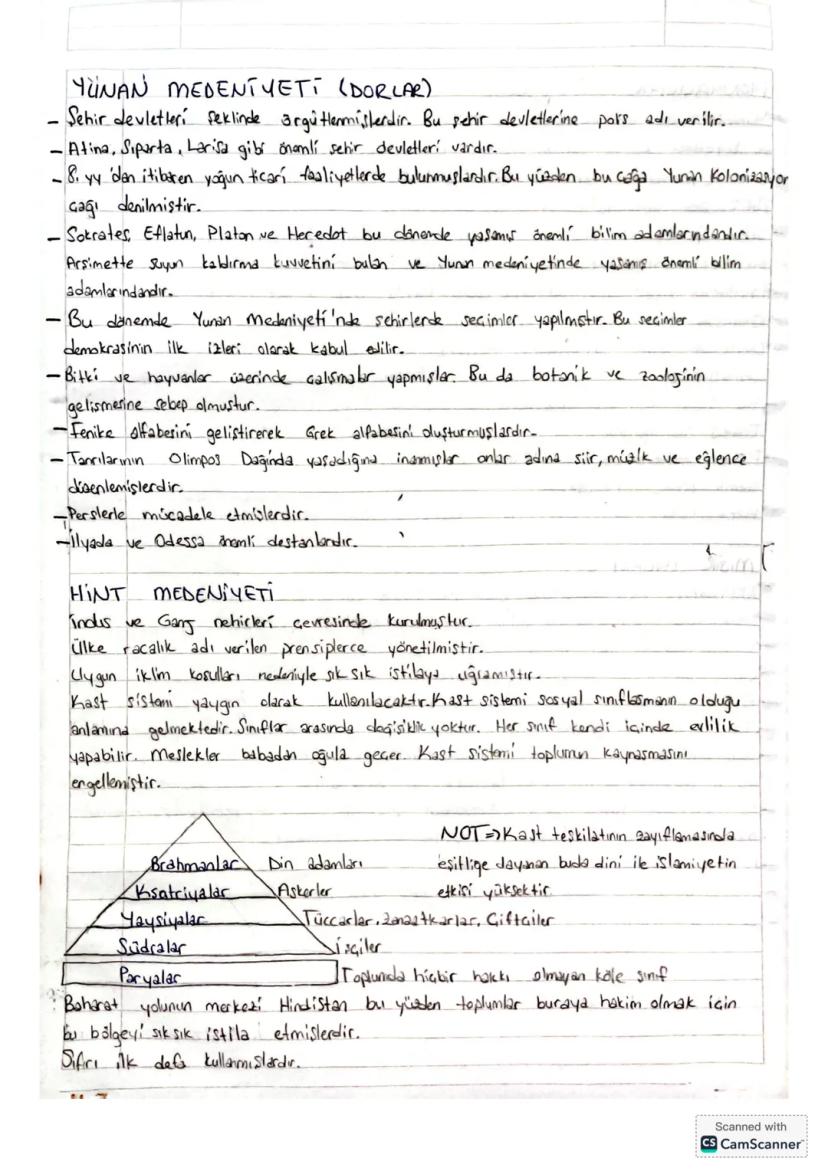 YUNAN MEDENİYETİ (DORLAR)
- Şehir devletleri şeklinde örgütlenmişlerdir. Bu şehir devletlerine polis adı verilir.
- Atina, Siparta, Larisa gibi önemli şehir devletleri vardır.
- 8. yy'dan itibaren yoğun ticari faaliyetlerde bulunmuşlardır. Bu yüzden bu çağa Yunan Kolonizasyor
çağı denilmiştir.
- Sokrates, Eflatun, Platon ve Heredot bu dönemde yaşamış önemli bilim adamlarındandır.
Arşimette suyun kaldırma kuvvetini bulan ve Yunan medeniyetinde yaşamış önemli bilim
adamlarındandır.
- Bu dönemde Yunan Medeniyeti'nde şehirlerde seçimler yapılmıştır. Bu seçimler
demokrasinin ilk izleri olarak kabul edilir.
- Bitki ve hayvanlar üzerinde çalışmalar yapmışlar. Bu da botanik ve zoolojinin
gelişmesine sebep olmuştur.
- Fenike alfabesini geliştirerek Grek alfabesini oluşturmuşlardır.
- Tanrılarının Olimpos Dağında yaşadığına inanmışlar onlar adına şiir, müzik ve eğlence
düzenlemişlerdir.
- Perslerle mücadele etmişlerdir.
- İlyada ve Odessa önemli destanlardır.
HİNT MEDENİYETİ
İndus ve Ganj nehirleri çevresinde kurulmuştur.
Ülke racalık adı verilen prensiplerce yönetilmiştir.
Uygun iklim koşulları nedeniyle sık sık istilaya uğramıştır.
Kast sistemi yaygın olarak kullanılacaktır. Kast sistemi sosyal sınıflaşmanın olduğu
anlamına gelmektedir. Sınıflar arasında değişiklik yoktur. Her sınıf kendi içinde evlilik
yapabilir. Meslekler babadan oğula geçer. Kast sistemi toplumun kaynaşmasını
engellemiştir.
NOT => Kast teşkilatının zayıflamasında
Brahmanlar Din adamları eşitliğe dayanan buda dini ile islamiyetin
Kşatriyalar Askerler etkisi yüksektir
Vaysiyalar Tüccarlar, Zanaatkarlar, Çiftçiler
Südralar İşçiler
Paryalar Toplumda hiçbir hakkı olmayan köle sınıf
Baharat yolunun merkezi Hindistan bu yüzden toplumlar buraya hakim olmak için
bu bölgeyi sık sık istila etmişlerdir.
Sıfırı ilk defa kullanmışlardır.
Scanned with
CS CamScanner